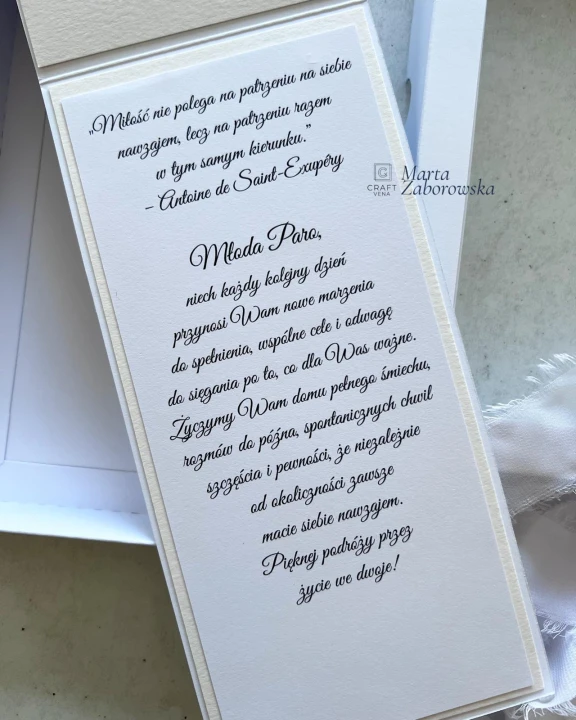 „Miłość nie polega na patrzeniu na siebie
nawzajem, lecz na patrzeniu razem
w tym samym kierunku."
– Antoine de Saint-Exupéry
Młoda Paro,
niech każdy kolejny dzień
przynosi Wam nowe marzenia
do spełnienia, wspólne cele i odwagę
do sięgania po to, co dla Was ważne.
Życzymy Wam domu pełnego śmiechu,
rozmów do późna, spontanicznych chwil
szczęścia i pewności, że niezależnie
od okoliczności zawsze
macie siebie nawzajem.
Pięknej podróży przez
życie we dwoje!
CRAFT
VENA
Marta
Zaborowska